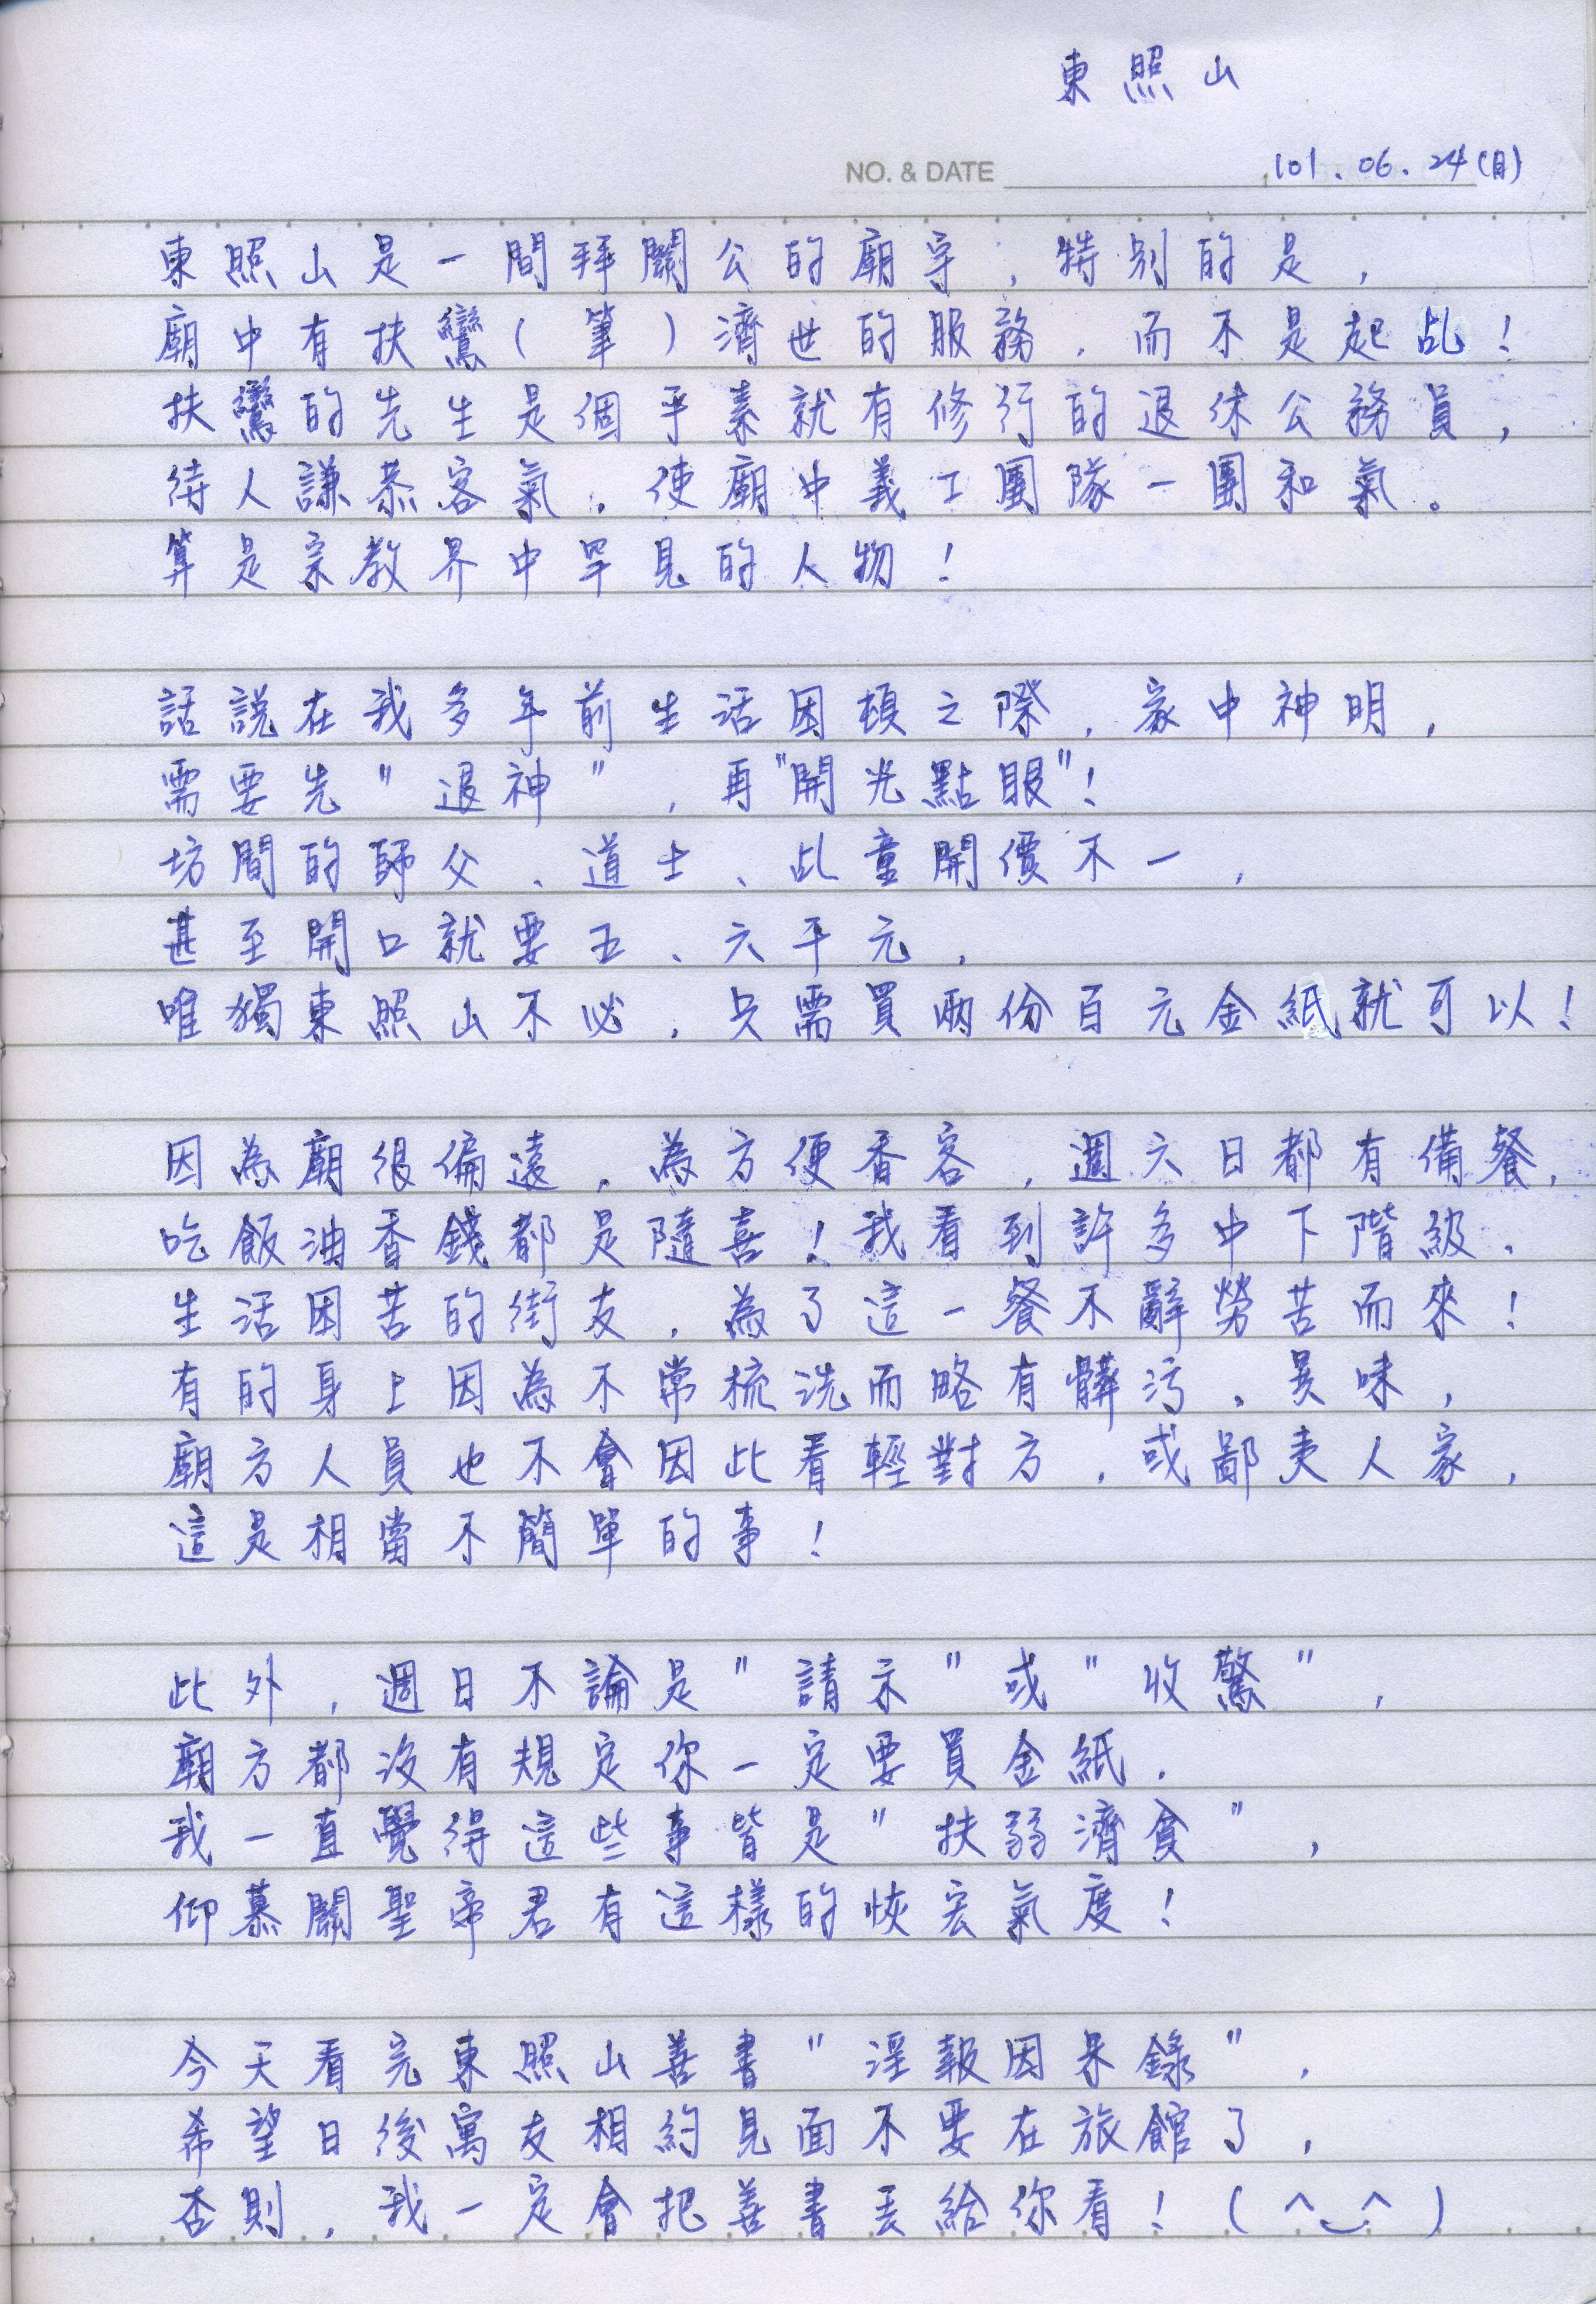 東照山
NO. & DATE 101.06.24(日)
東照山是一間拜關公的廟宇，特別的是，
廟中有扶鸞(筆)濟世的服務，而不是起乩！
扶鸞的先生是個平素就有修行的退休公務員，
待人謙恭客氣，使廟中義工團隊一團和氣。
算是宗教界中罕見的人物！
話說在我多年前生活困頓之際，家中神明，
需要先"退神"，再"開光點眼"！
坊間的師父、道士、乩童開價不一，
甚至開口就要五、六千元，
唯獨東照山不必，只需買兩份百元金紙就可以！
因為廟很偏遠，為方便香客，週六日都有備餐，
吃飯油香錢都是隨喜！我看到許多中下階級，
生活困苦的街友，為了這一餐不辭勞苦而來！
有的身上因為不常梳洗而略有髒污，異味，
廟方人員也不會因此看輕對方，或鄙夷人家，
這是相當不簡單的事！
此外，週日不論是"請示"或"收驚"，
廟方都沒有規定你一定要買金紙，
我一直覺得這些事皆是"扶弱濟貧"，
仰慕關聖帝君有這樣的恢宏氣度！
今天看完東照山善書"淫報因果錄"，
希望日後寓友相約見面不要在旅館了，
否則，我一定會把善書丟給你看！(^‿^)